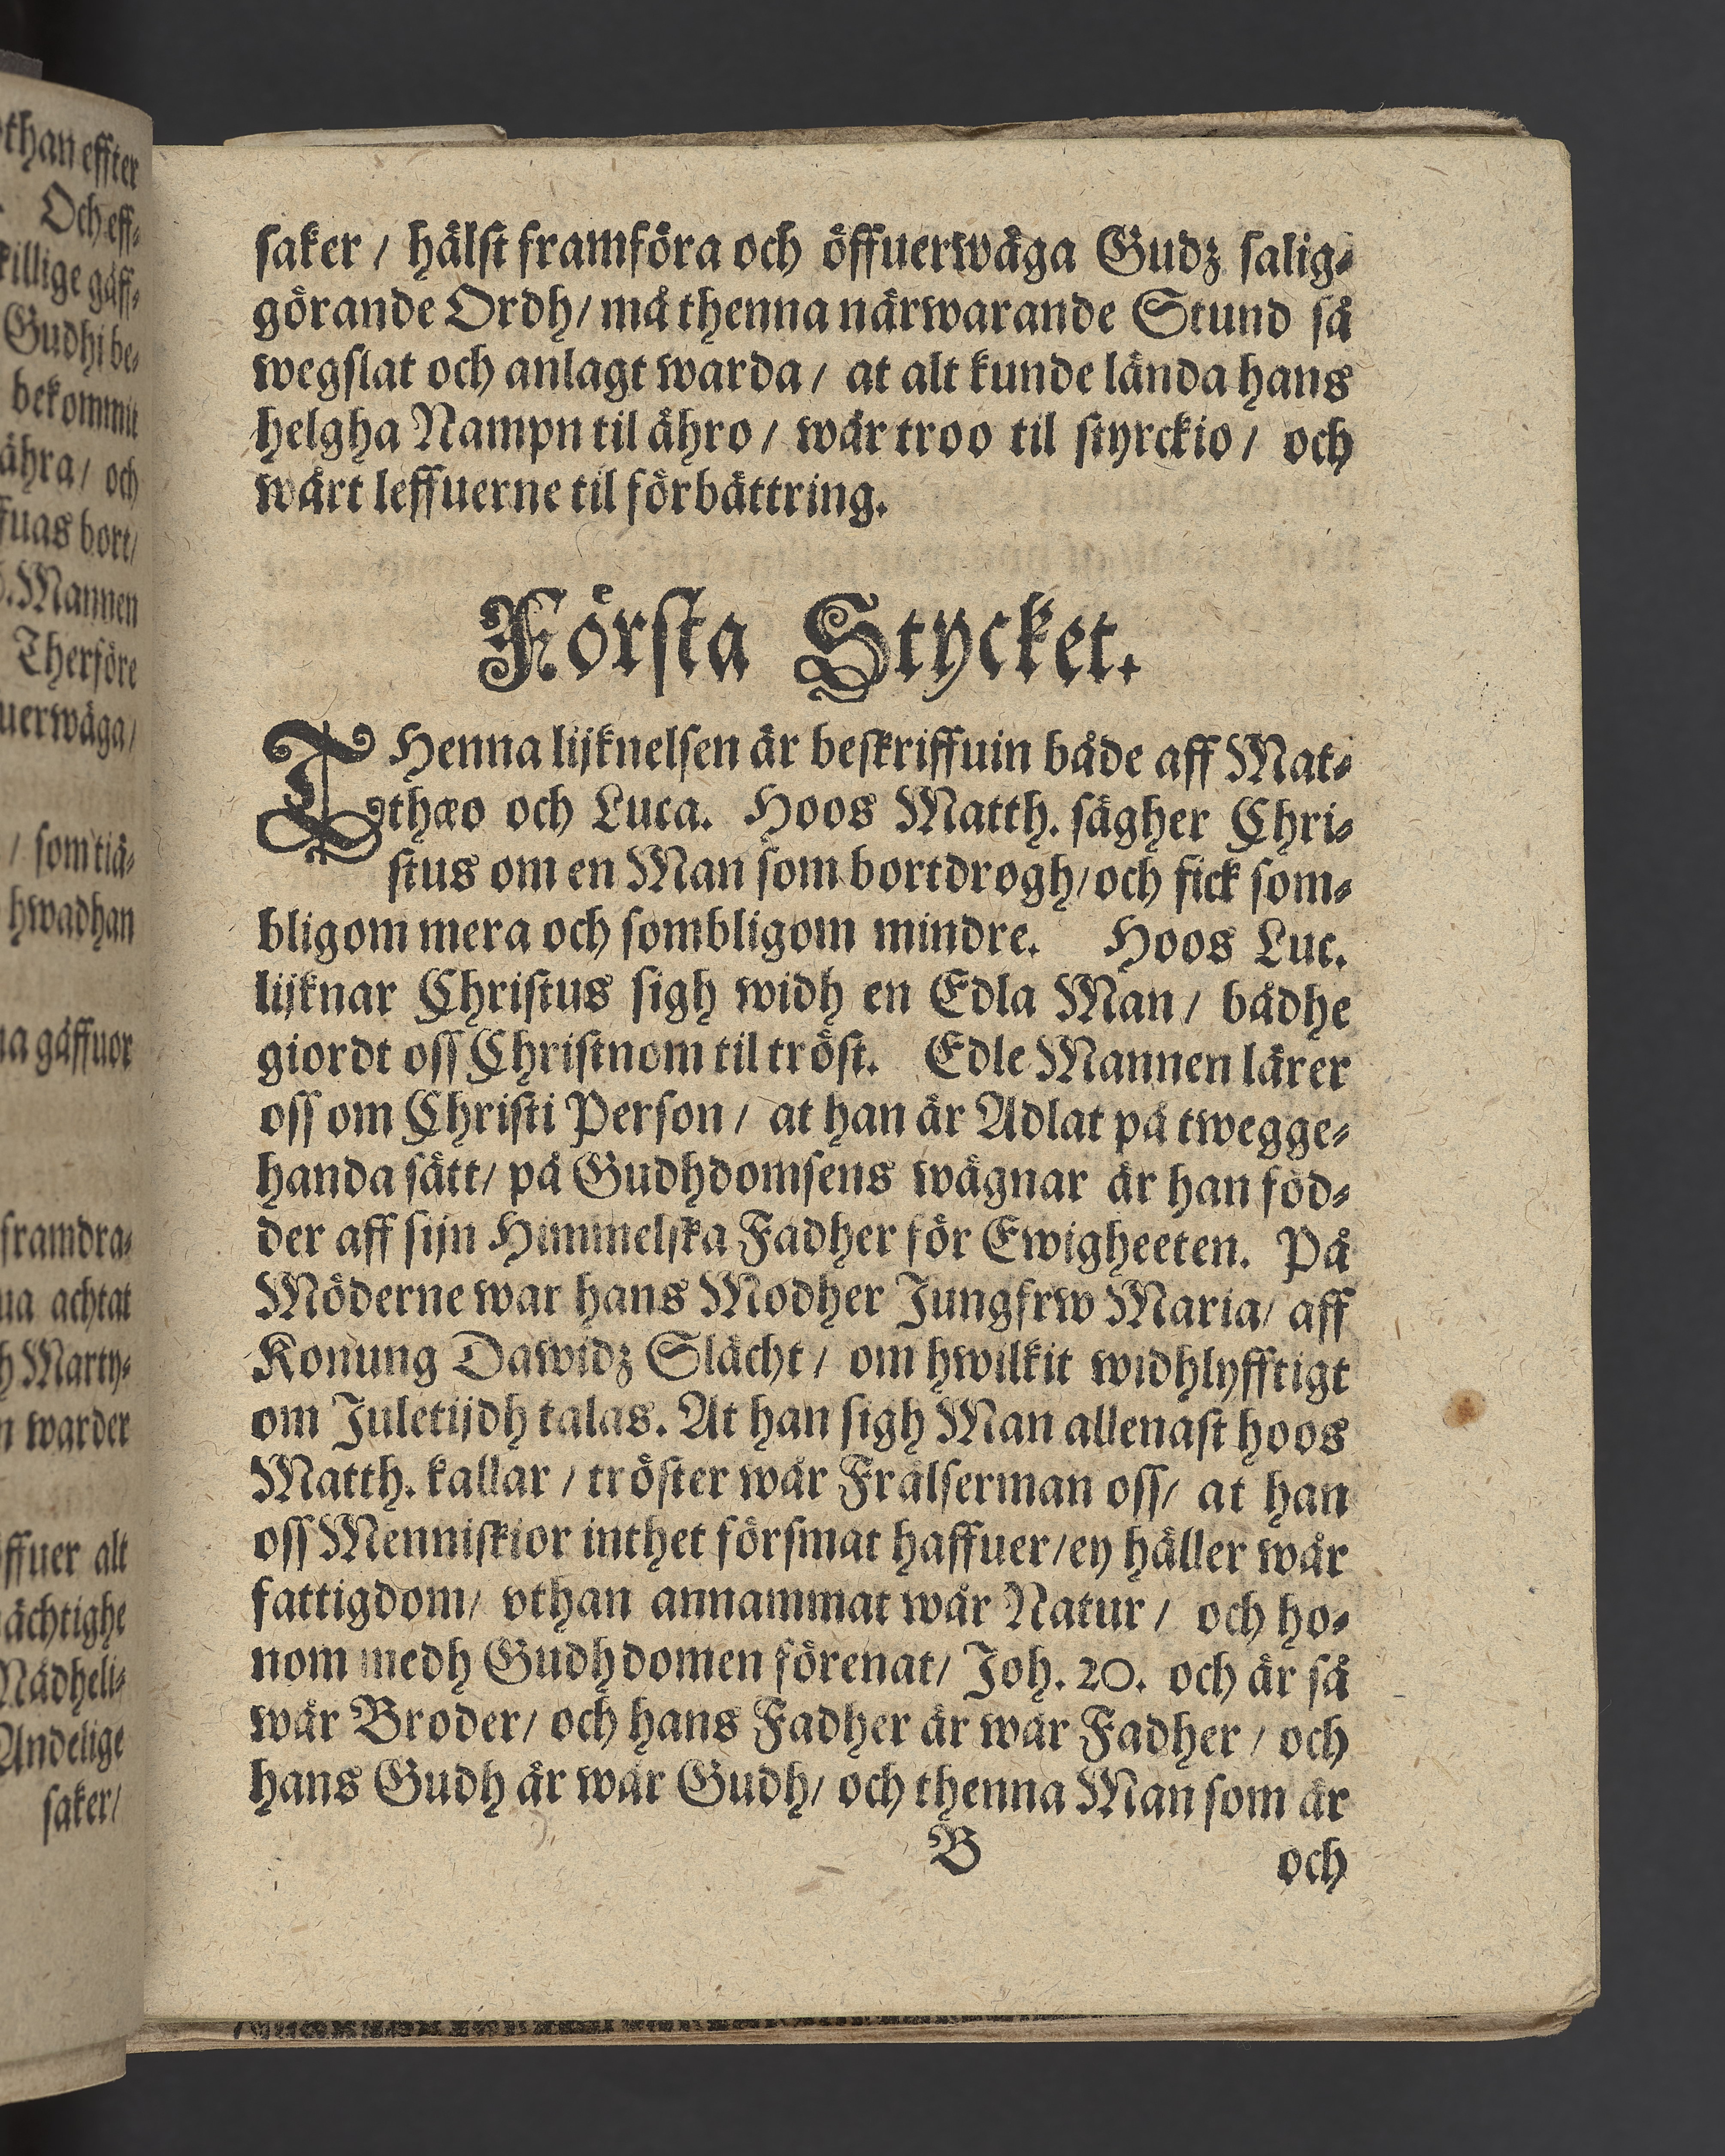 than effter
Och eff⸗
killige gåff⸗
Gudhi be⸗
bekommit
ähra / och
fuas bort /
Mannen
Therföre
uerwäga /
/ som tiä⸗
hwadhan
na gåffuor
framdra⸗
ua achtat
h Marty⸗
n warder
ffuer alt
ächtighe
Nådheli⸗
Andelige
saker /
saker / hälst framföra och öffuerwäga Gudz salig⸗
görande Ordh / må thenna närwarande Stund så
wegslat och anlagt warda / at alt kunde lända hans
helgha Nampn til ähro / wår troo til styrckio / och
wårt leffuerne til förbättring.
Första Stycket.
THenna lijknelsen är beskriffuin både aff Mat⸗
thæo och Luca. Hoos Matth. sägher Chri⸗
stus om en Man som bortdrogh / och fick som⸗
bligom mera och sombligom mindre. Hoos Luc.
lijknar Christus sigh widh en Edla Man / bådhe
giordt oss Christnom til tröst. Edle Mannen lärer
oss om Christi Person / at han är Adlat på twegge⸗
handa sätt / på Gudhdomsens wägnar är han föd⸗
der aff sijn Himmelska Fadher för Ewigheeten. På
Möderne war hans Modher Jungfrw Maria / aff
Konung Dawidz Slächt / om hwilkit widhlyfftigt
om Juletijdh talas. At han sigh Man allenast hoos
Matth. kallar / tröster wår Frälserman oss / at han
oss Menniskior inthet försmat haffuer / ey häller wår
fattigdom / vthan annammat wår Natur / och ho⸗
nom medh Gudhdomen förenat / Joh. 20. och är så
wår Broder / och hans Fadher är wår Fadher / och
hans Gudh är wår Gudh / och thenna Man som är
B
och